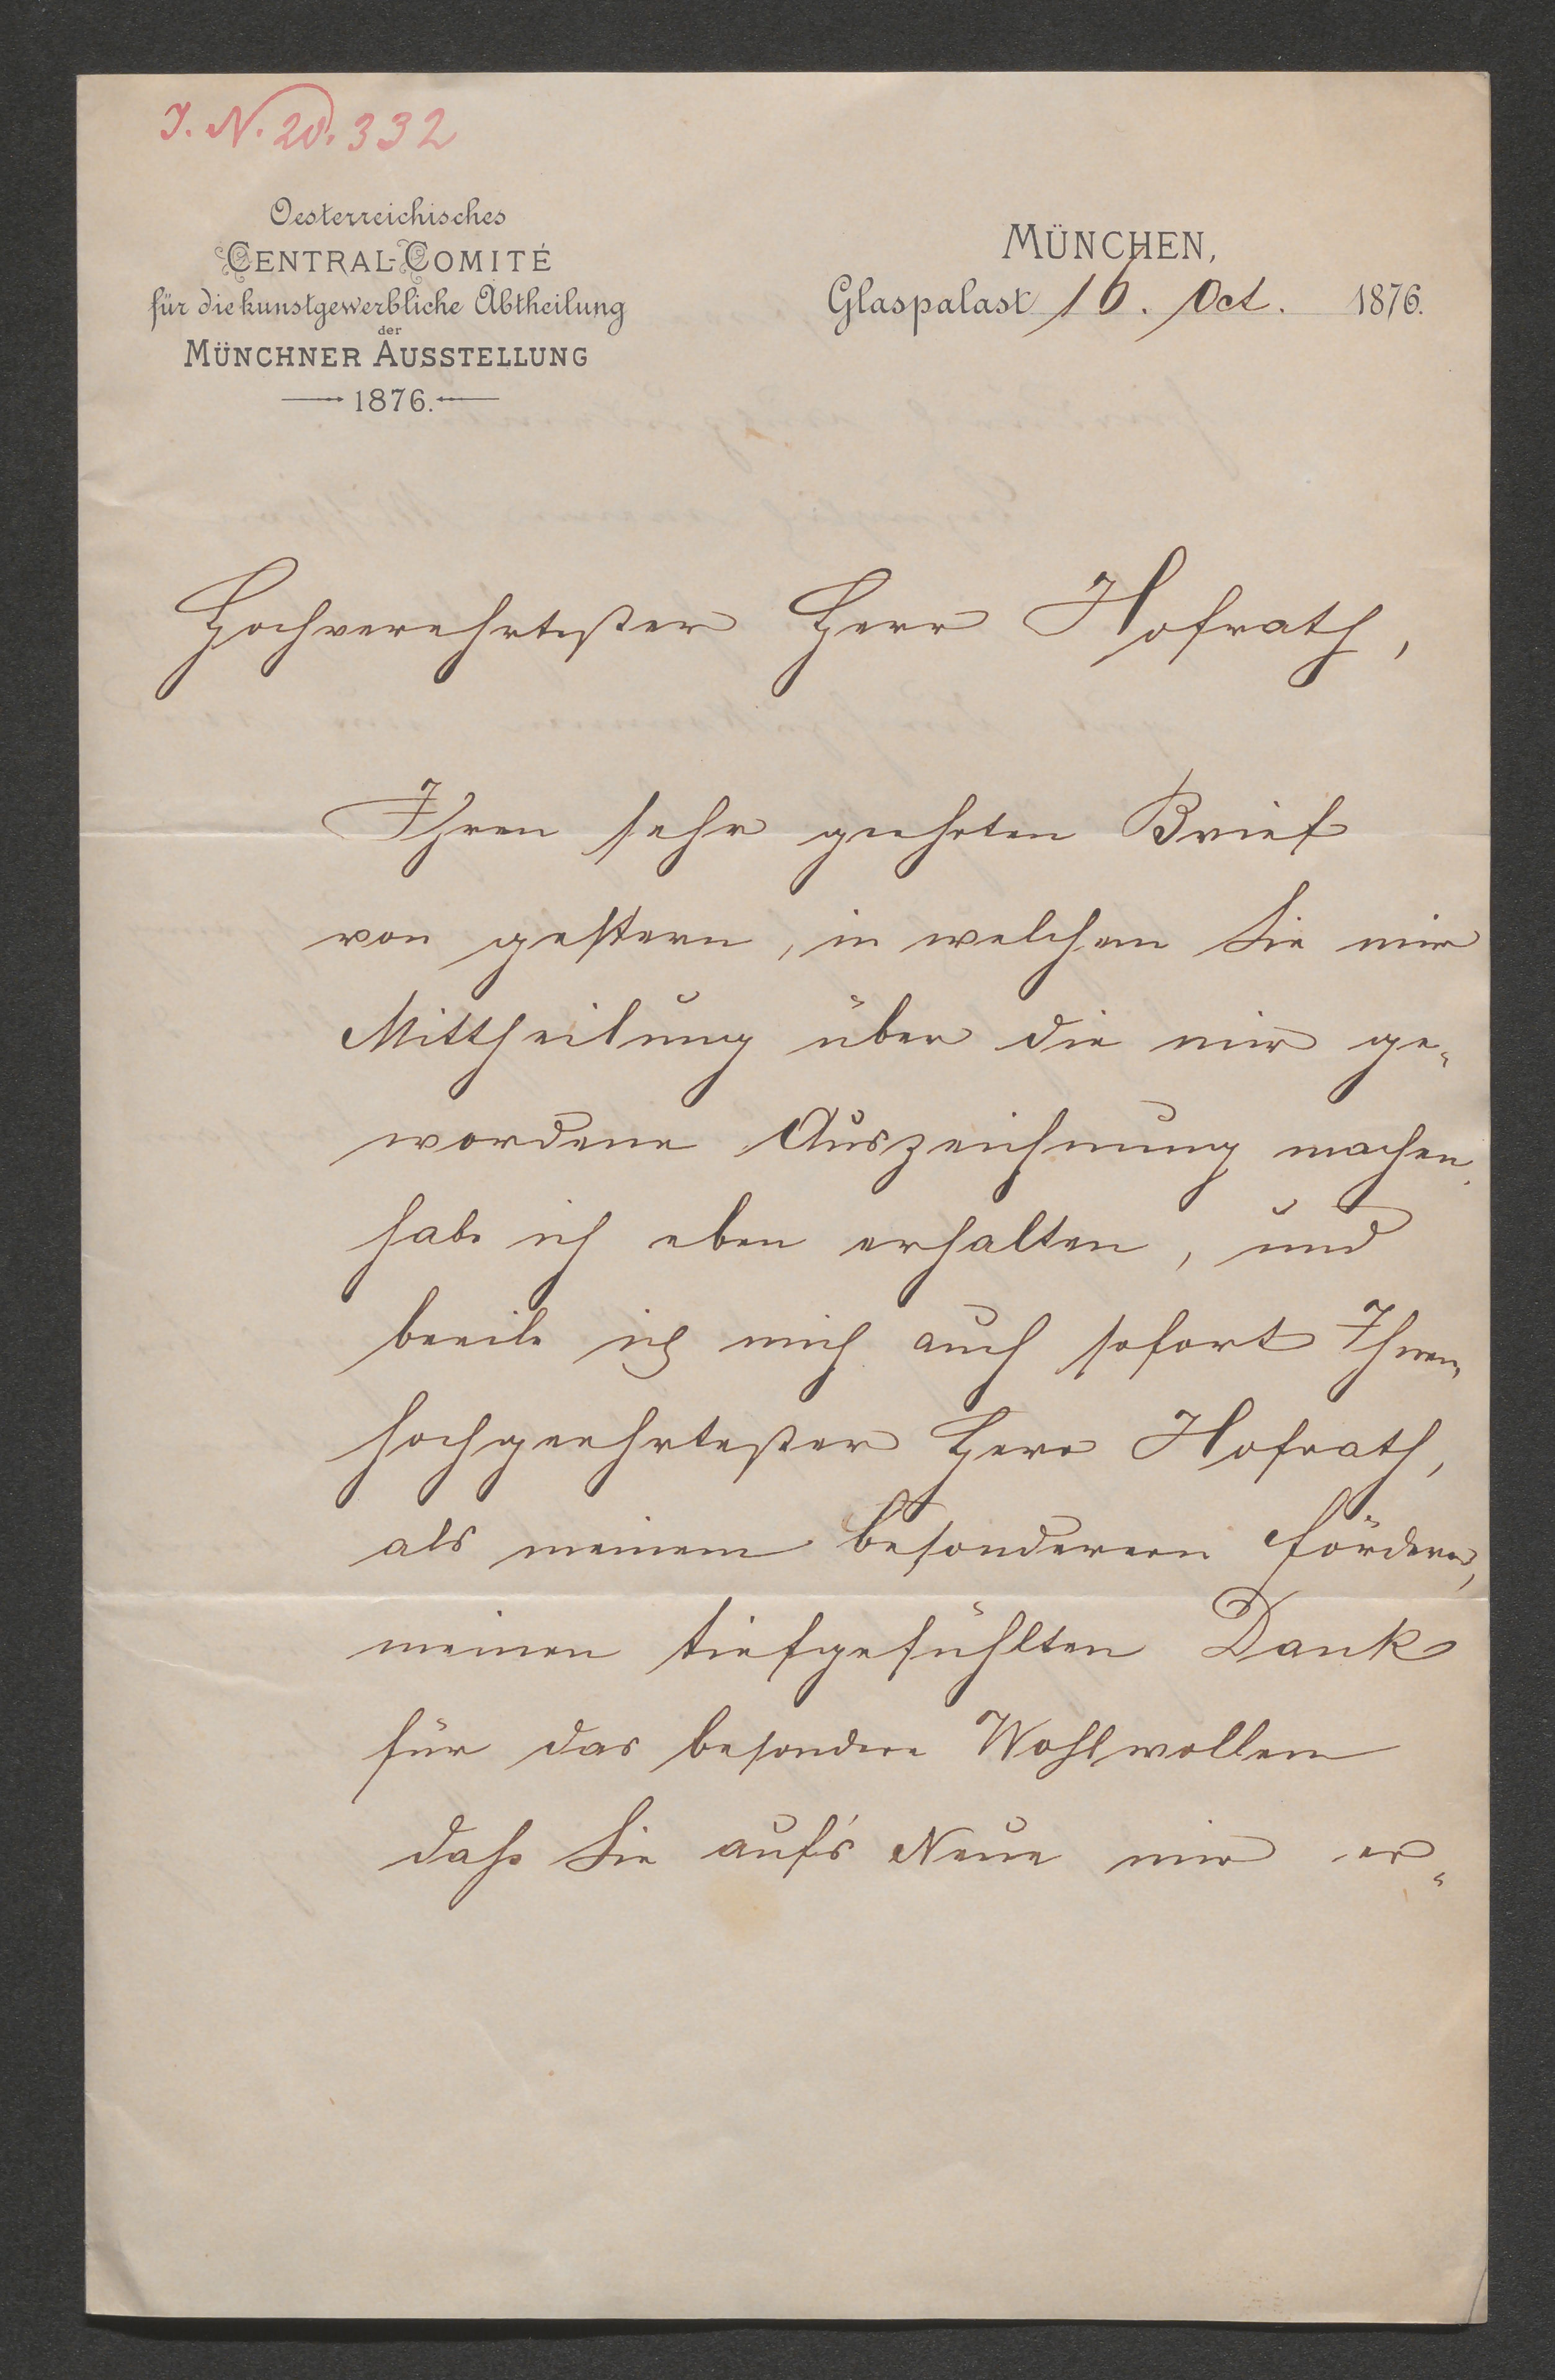 J. N. 20.332
Oesterreichisches
CENTRAL-COMITÉ
für die kunstgewerbliche Abtheilung
der
MÜNCHNER AUSSTELLUNG
1876.
MÜNCHEN,
Glaspalast 16. Oct. 1876.
Hochverehrtester Herr Hofrath,
Ihren sehr geehrten Brief
von gestern, in welchem Sie mir
Mittheilung über die mir ge-
wordene Auszeichnung machen,
habe ich eben erhalten, und
beeile ich mich auch sofort Ihnen,
hochgeehrtester Herr Hofrath,
als meinem besonderen Förderer,
meinen tiefgefühlten Dank
für das besondere Wohlwollen
daß Sie auf's Neue mir er-